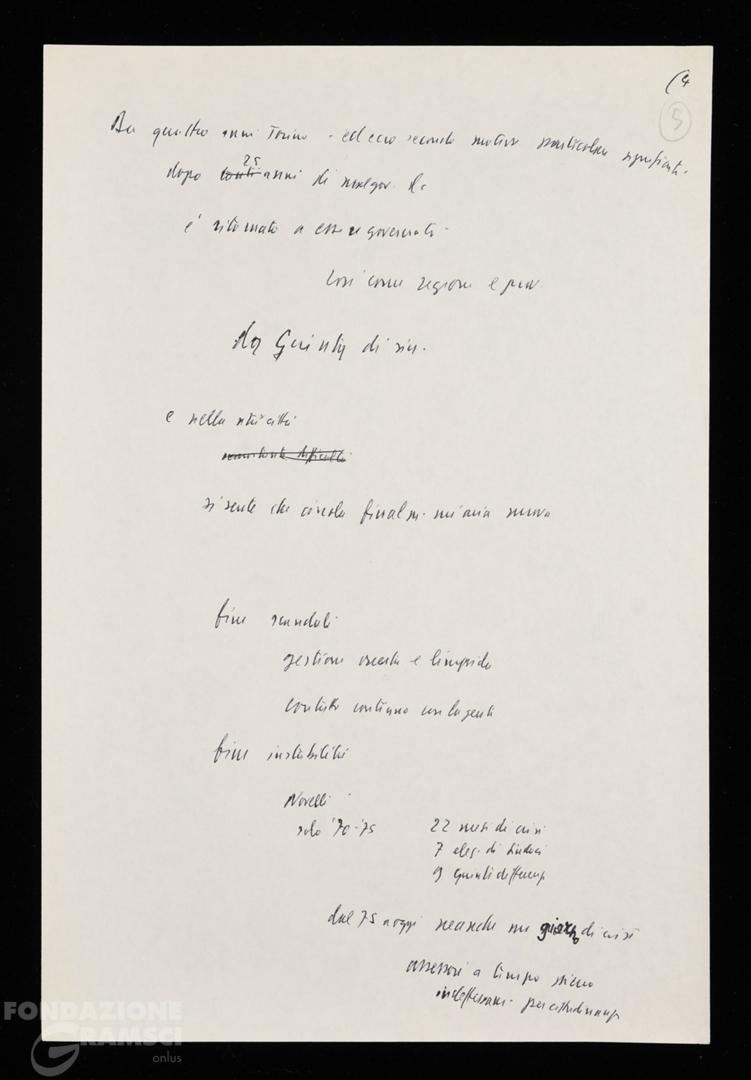 (4
5
Da quattro anni Torino - ed ecco secondo motivo particolarm significativ.
25
dopo tanti anni di malgov. dc
è ritornata a essere governata -
così come regione e prov.
da Giunta di sin.
e nella città
si sente che circola finalm. un'aria nuova
fine scandali
gestione onesta e limpida
contatto continuo con la gente
fine instabilità
Novelli
solo '70-'75
22 mesi di crisi
7 elez. di Sindaci
9 giunte
dal 75 a oggi neanche un giorno di crisi
assessori a tempo pieno
FONDAZIONE
GRAMSCI
onlus